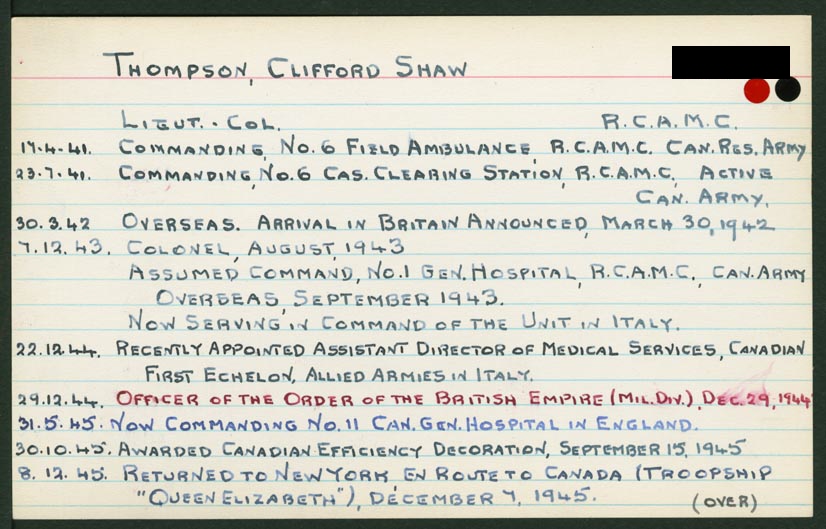 THOMPSON, CLIFFORD SHAW
LIEUT.-COL. R.C.A.M.C.
17.4.41. COMMANDING, NO.6 FIELD AMBULANCE, R.C.A.M.C. CAN.RES.ARMY
23.7.41. COMMANDING, NO.6 CAS. CLEARING STATION, R.C.A.M.C., ACTIVE
CAN. ARMY.
30.3.42 OVERSEAS. ARRIVAL IN BRITAIN ANNOUNCED, MARCH 30, 1942
7.12.43. COLONEL, AUGUST, 1943
ASSUMED COMMAND, NO.1 GEN. HOSPITAL, R.C.A.M.C., CAN. ARMY
OVERSEAS, SEPTEMBER 1943.
NOW SERVING IN COMMAND OF THE UNIT IN ITALY.
22.12.44. RECENTLY APPOINTED ASSISTANT DIRECTOR OF MEDICAL SERVICES, CANADIAN
FIRST ECHELON, ALLIED ARMIES IN ITALY.
29.12.44. OFFICER OF THE ORDER OF THE BRITISH EMPIRE (MIL.DIV.), DEC. 29, 1944
31.5.45. NOW COMMANDING NO.11 CAN. GEN. HOSPITAL IN ENGLAND.
30.10.45. AWARDED CANADIAN EFFICIENCY DECORATION, SEPTEMBER 15, 1945
8.12.45. RETURNED TO NEW YORK EN ROUTE TO CANADA (TROOPSHIP
"QUEEN ELIZABETH"), DECEMBER 7, 1945.
(OVER)